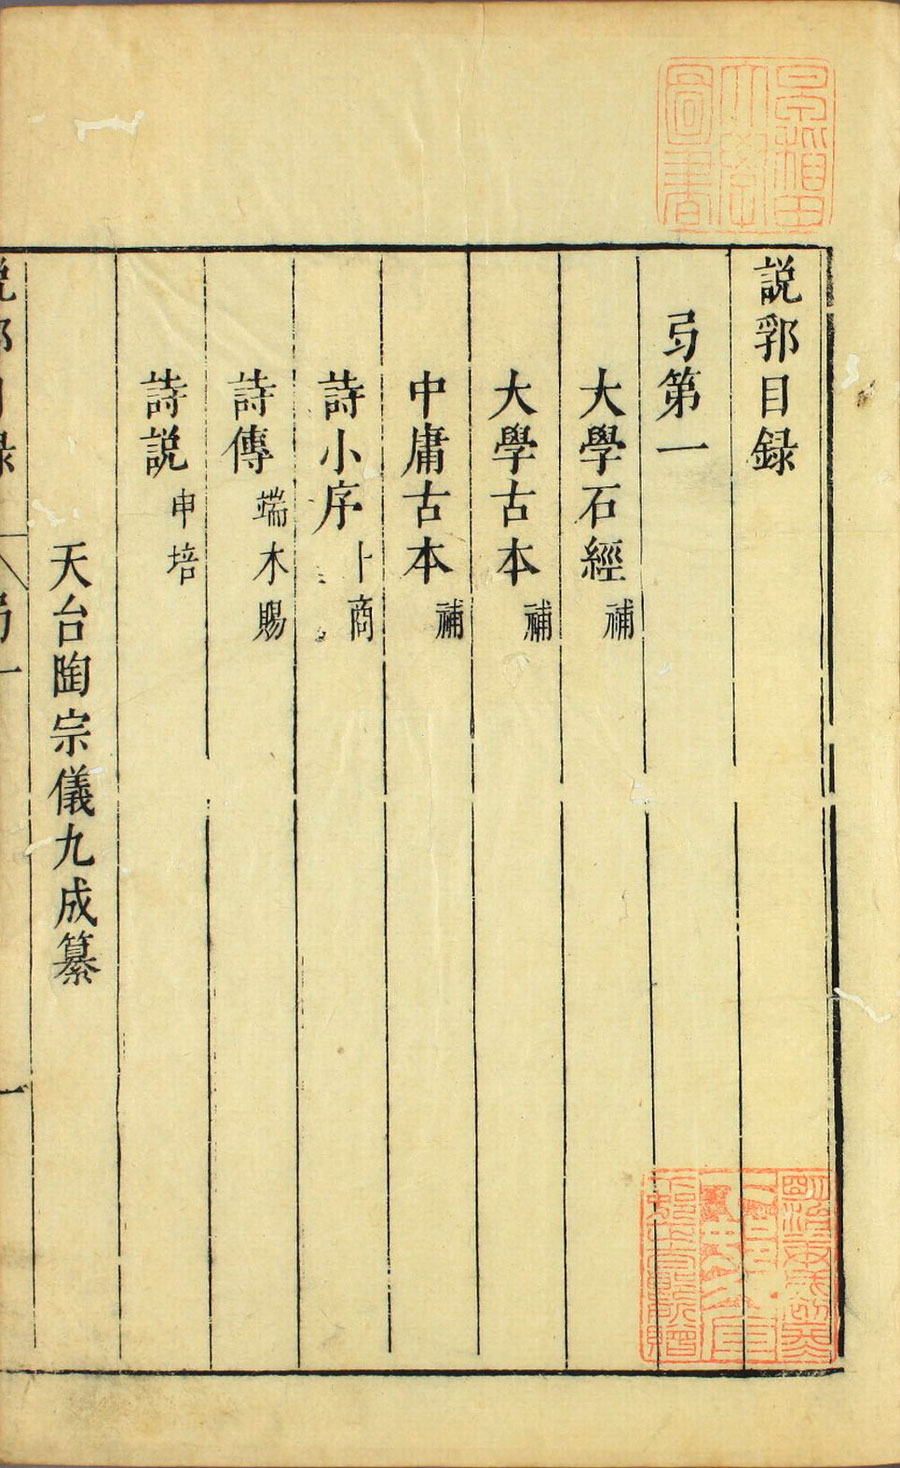 説郛目録
弓第一
大學石經 補
大學古本 補
中庸古本 補
詩小序 卜商
詩傳 端木賜
詩説 申培
天台陶宗儀九成纂
早稲田大學圖書